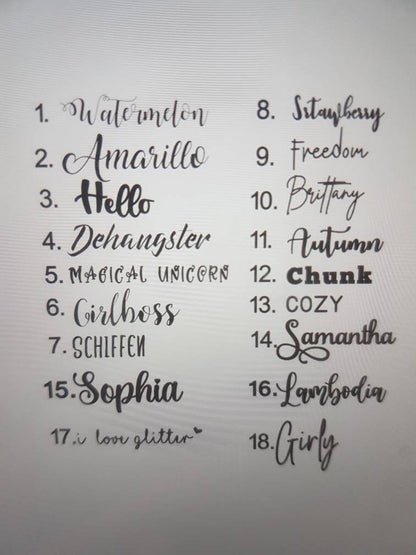 1. Watermelon
2. Amarillo
3. Hello
4. Dehangster
5. MAGICAL UNICORN
6. Girlboss
7. SCHIFFEN
15. Sophia
17. i love glitter
8. Sstawberry
9. Freedom
10. Brittany
11. Autumn
12. Chunk
13. COZY
14. Samantha
16. Lambodia
18. Girly